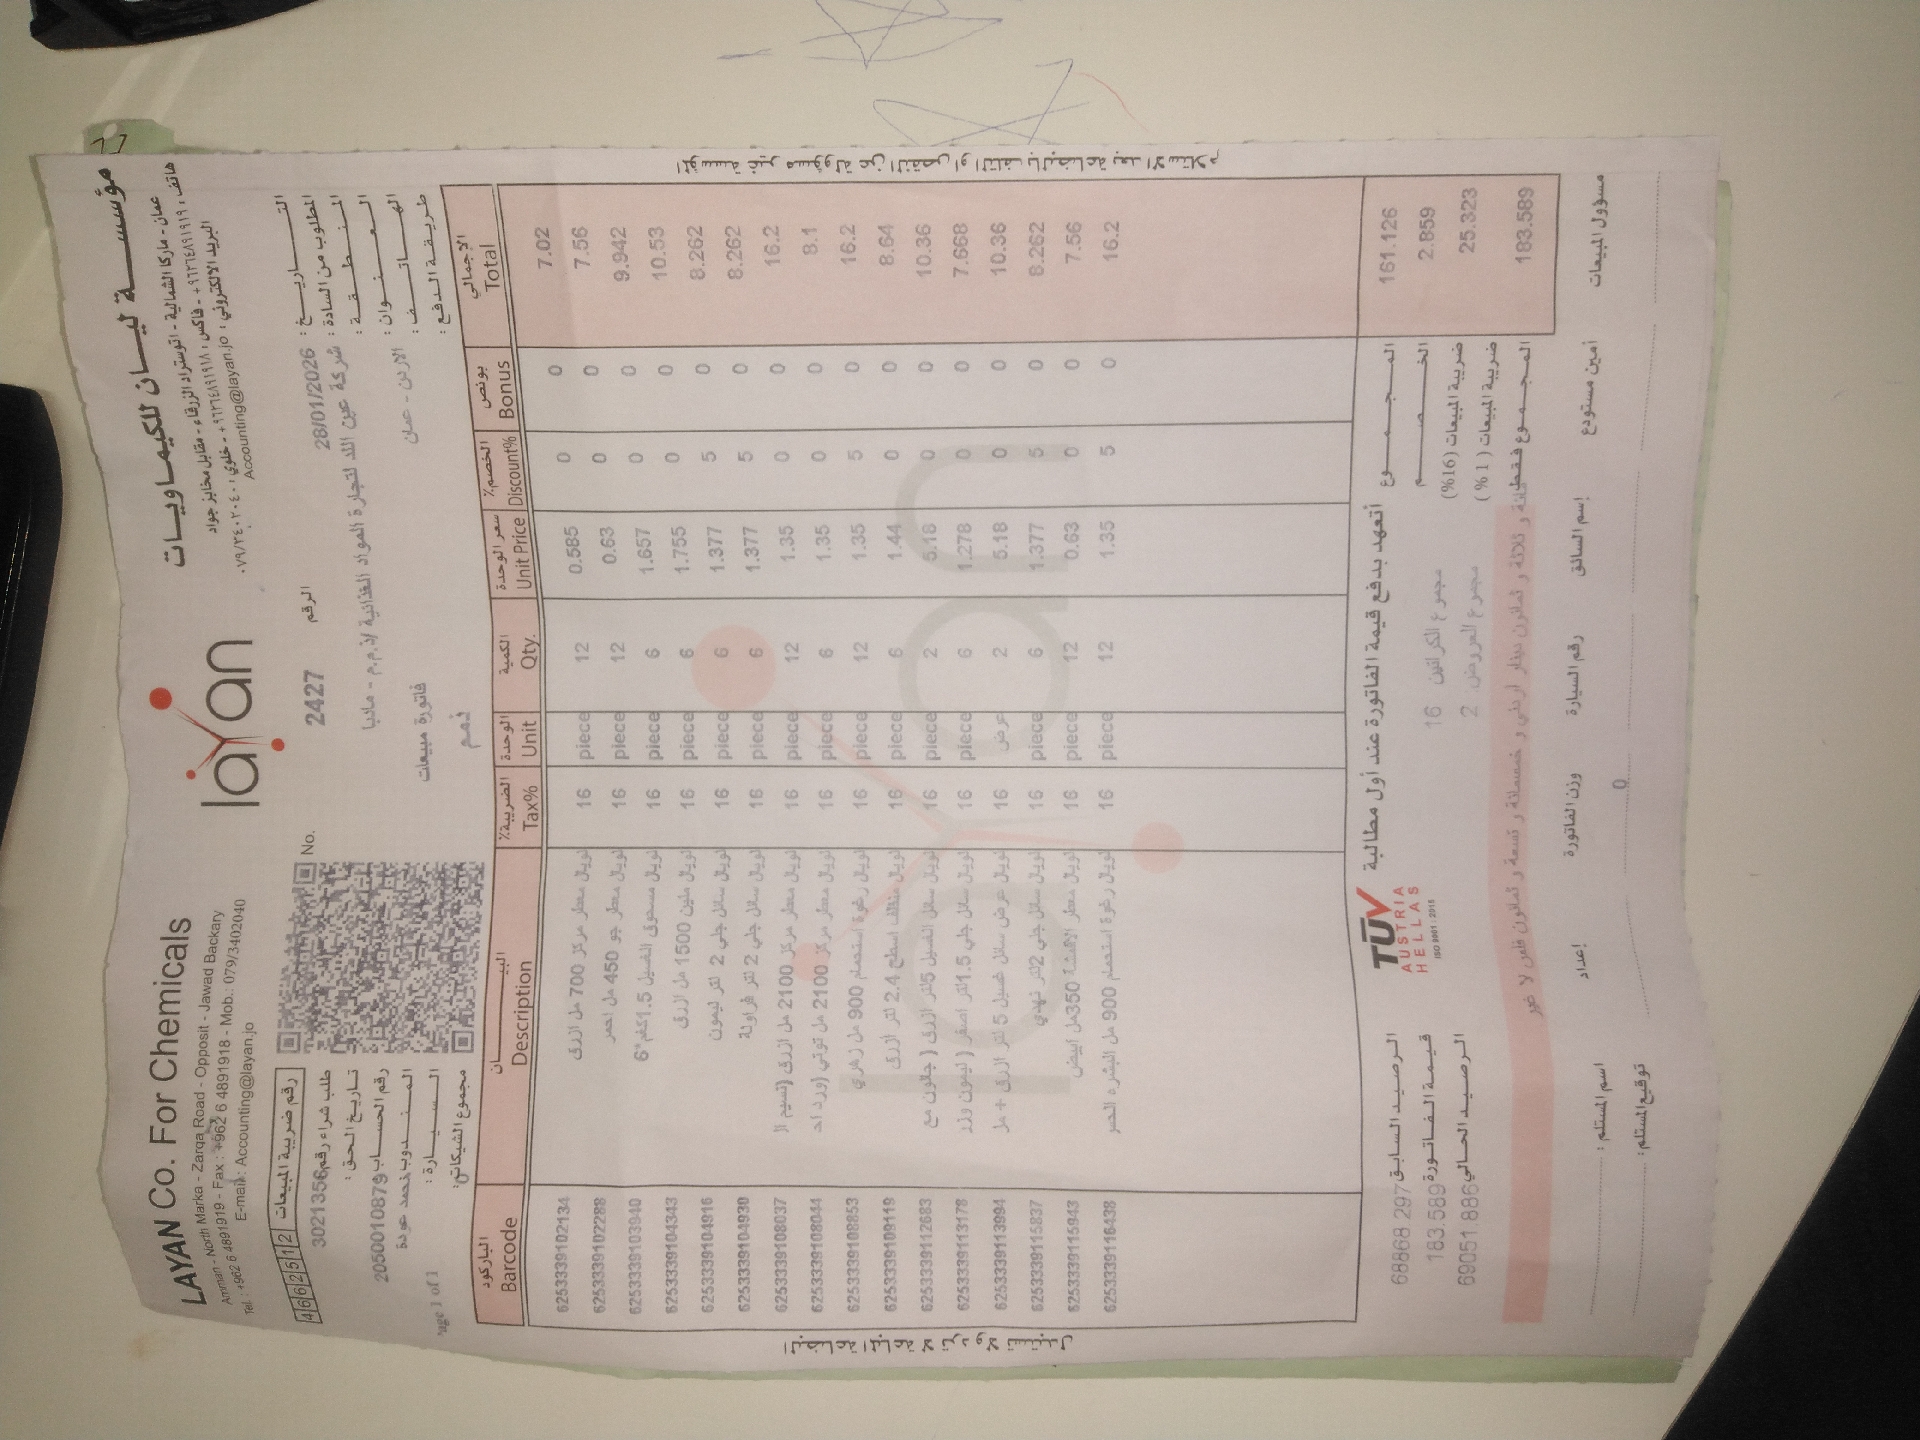 LAYAN Co. For Chemicals
Amman - North Marka - Zarqa Road - Opposit - Jawad Backary
Tel. : +962 6 4891919 - Fax : +962 6 4891918 - Mob.: 079/3402040
E-mail: Accounting@layan.jo
layan
مؤسسة ليان للكيماويات
عمان - ماركا الشمالية - اتوستراد الزرقاء - مقابل مخابز جواد
هاتف : +٩٦٢٦٤٨٩١٩١٩ - فاكس : +٩٦٢٦٤٨٩١٩١٨ - خلوي : ٠٧٩/٣٤٠٢٠٤٠
البريد الالكتروني : Accounting@layan.jo
رقم ضريبة المبيعات 4662512
No. 2427 الرقم
التاريخ : 28/01/2026
طلب شراء رقم 3021356
المطلوب من السادة : شركة عين الله لتجارة المواد الغذائية /ذ.م.م - مادبا
تاريخ الحق :
المنطقة :
رقم الحساب 2050010879
العنوان : الاردن - عمان
المندوب محمد عودة
الهاتف :
السيارة :
فاتورة مبيعات
طريقة الدفع :
ذمم
مجموع الشيكات :
age 1 of 1
الباركود البيان الضريبة% الوحدة الكمية سعر الوحدة الخصم% بونص الإجمالي
Barcode Description Tax% Unit Qty. Unit Price Discount% Bonus Total
6253339102134 لويال معطر مركز 700 مل ازرق 16 piece 12 0.585 0 0 7.02
6253339102288 لويال معطر جو 450 مل احمر 16 piece 12 0.63 0 0 7.56
6253339103940 لويال مسحوق الغسيل 1.5كغم*6 16 piece 6 1.657 0 0 9.942
6253339104343 لويال ملين 1500 مل ازرق 16 piece 6 1.755 0 0 10.53
6253339104916 لويال سائل جلي 2 لتر ليمون 16 piece 6 1.377 5 0 8.262
6253339104930 لويال سائل جلي 2 لتر فراولة 16 piece 6 1.377 5 0 8.262
6253339108037 لويال معطر مركز 2100 مل ازرق (نسيم ال 16 piece 12 1.35 0 0 16.2
6253339108044 لويال معطر مركز 2100 مل توتي (ورد احد 16 piece 6 1.35 0 0 8.1
6253339108853 لويال رغوة استحمام 900 مل زهري 16 piece 12 1.35 5 0 16.2
6253339109119 لويال منظف اسطح 2.4 لتر ازرق 16 piece 6 1.44 0 0 8.64
6253339112683 لويال سائل الغسيل 5لتر ازرق ( جالون مع 16 piece 2 5.18 0 0 10.36
6253339113178 لويال سائل جلي 1.5لتر اصفر ( ليمون وزد 16 piece 6 1.278 0 0 7.668
6253339113994 لويال عرض سائل غسيل 5 لتر ازرق + مل 16 عرض 2 5.18 0 0 10.36
6253339115837 لويال سائل جلي 2لتر نهدي 16 piece 6 1.377 5 0 8.262
6253339115943 لويال معطر الاقمشة 350مل ابيض 16 piece 12 0.63 0 0 7.56
6253339116438 لويال رغوة استحمام 900 مل البشره الحس 16 piece 12 1.35 5 0 16.2
البضاعة المباعة لا ترد ولا تستبدل
المؤسسة غير مسؤولة عن النقص او التلف بالبضاعة بعد الاستلام
أتعهد بدفع قيمة الفاتورة عند أول مطالبة
TÜV
AUSTRIA
HELLAS
ISO 9001 : 2015
المجموع 161.126
الرصيد السابق 68868.297
مجموع الكراتين 16
الخصم 2.859
قيمة الفاتورة 183.589
مجموع العروض 2
ضريبة المبيعات (16%) 25.323
الرصيد الحالي 69051.886
ضريبة المبيعات (1%)
المجموع فقط 183.589
مائة و ثلاثة و ثمانون دينار اردني و خمسمائة و تسعة و ثمانون فلس لا غير
اسم المستلم :
إعداد
وزن الفاتورة
رقم السيارة
إسم السائق
أمين مستودع
مسؤول المبيعات
توقيع المستلم :
0